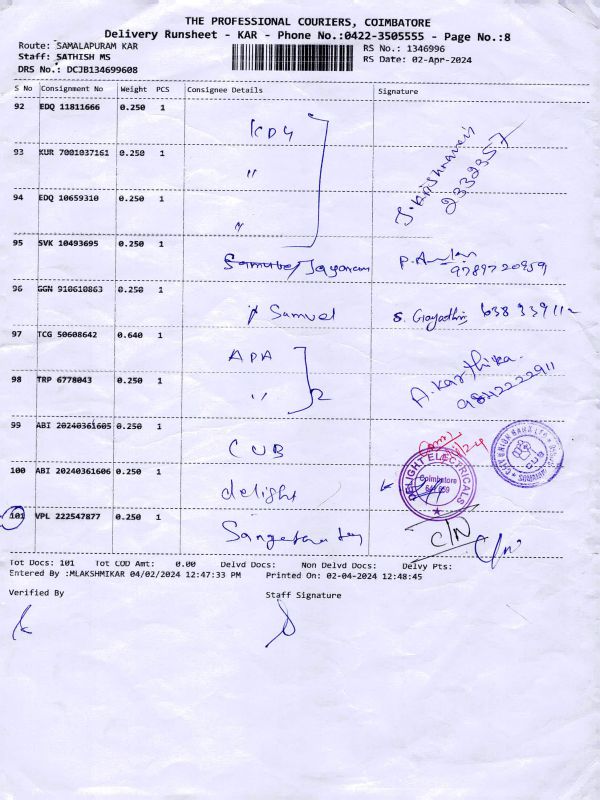 THE PROFESSIONAL COURIERS, COIMBATORE
Delivery Runsheet - KAR - Phone No.:0422-3505555 - Page No.:8
Route: SAMALAPURAM KAR RS No.: 1346996
Staff: SATHISH MS RS Date: 02-Apr-2024
DRS No.: DCJB134699608
S No Consignment No Weight PCS Consignee Details Signature
92 EDQ 11811666 0.250 1
KDY
93 KUR 7001037161 0.250 1
"
S. Krishnaveni
2332357
94 EDQ 10659310 0.250 1
"
95 SVK 10493695 0.250 1
Jayaram P.
9789720959
96 GGN 910610863 0.250 1
Samuel S. Gayadhri
97 TCG 50608642 0.640 1
APA
A. Karthika
98 TRP 6778043 0.250 1
" 2
9842222911
99 ABI 20240361605 0.250 1
CUB
CUB
100 ABI 20240361606 0.250 1
delight
DELIGHT ELECTRICALS
Coimbatore
101 VPL 222547877 0.250 1
Sangeetha
C/N C/N
Tot Docs: 101 Tot COD Amt: 0.00 Delvd Docs: Non Delvd Docs: Delvy Pts:
Entered By :MLAKSHMIKAR 04/02/2024 12:47:33 PM Printed On: 02-04-2024 12:48:45
Verified By Staff Signature